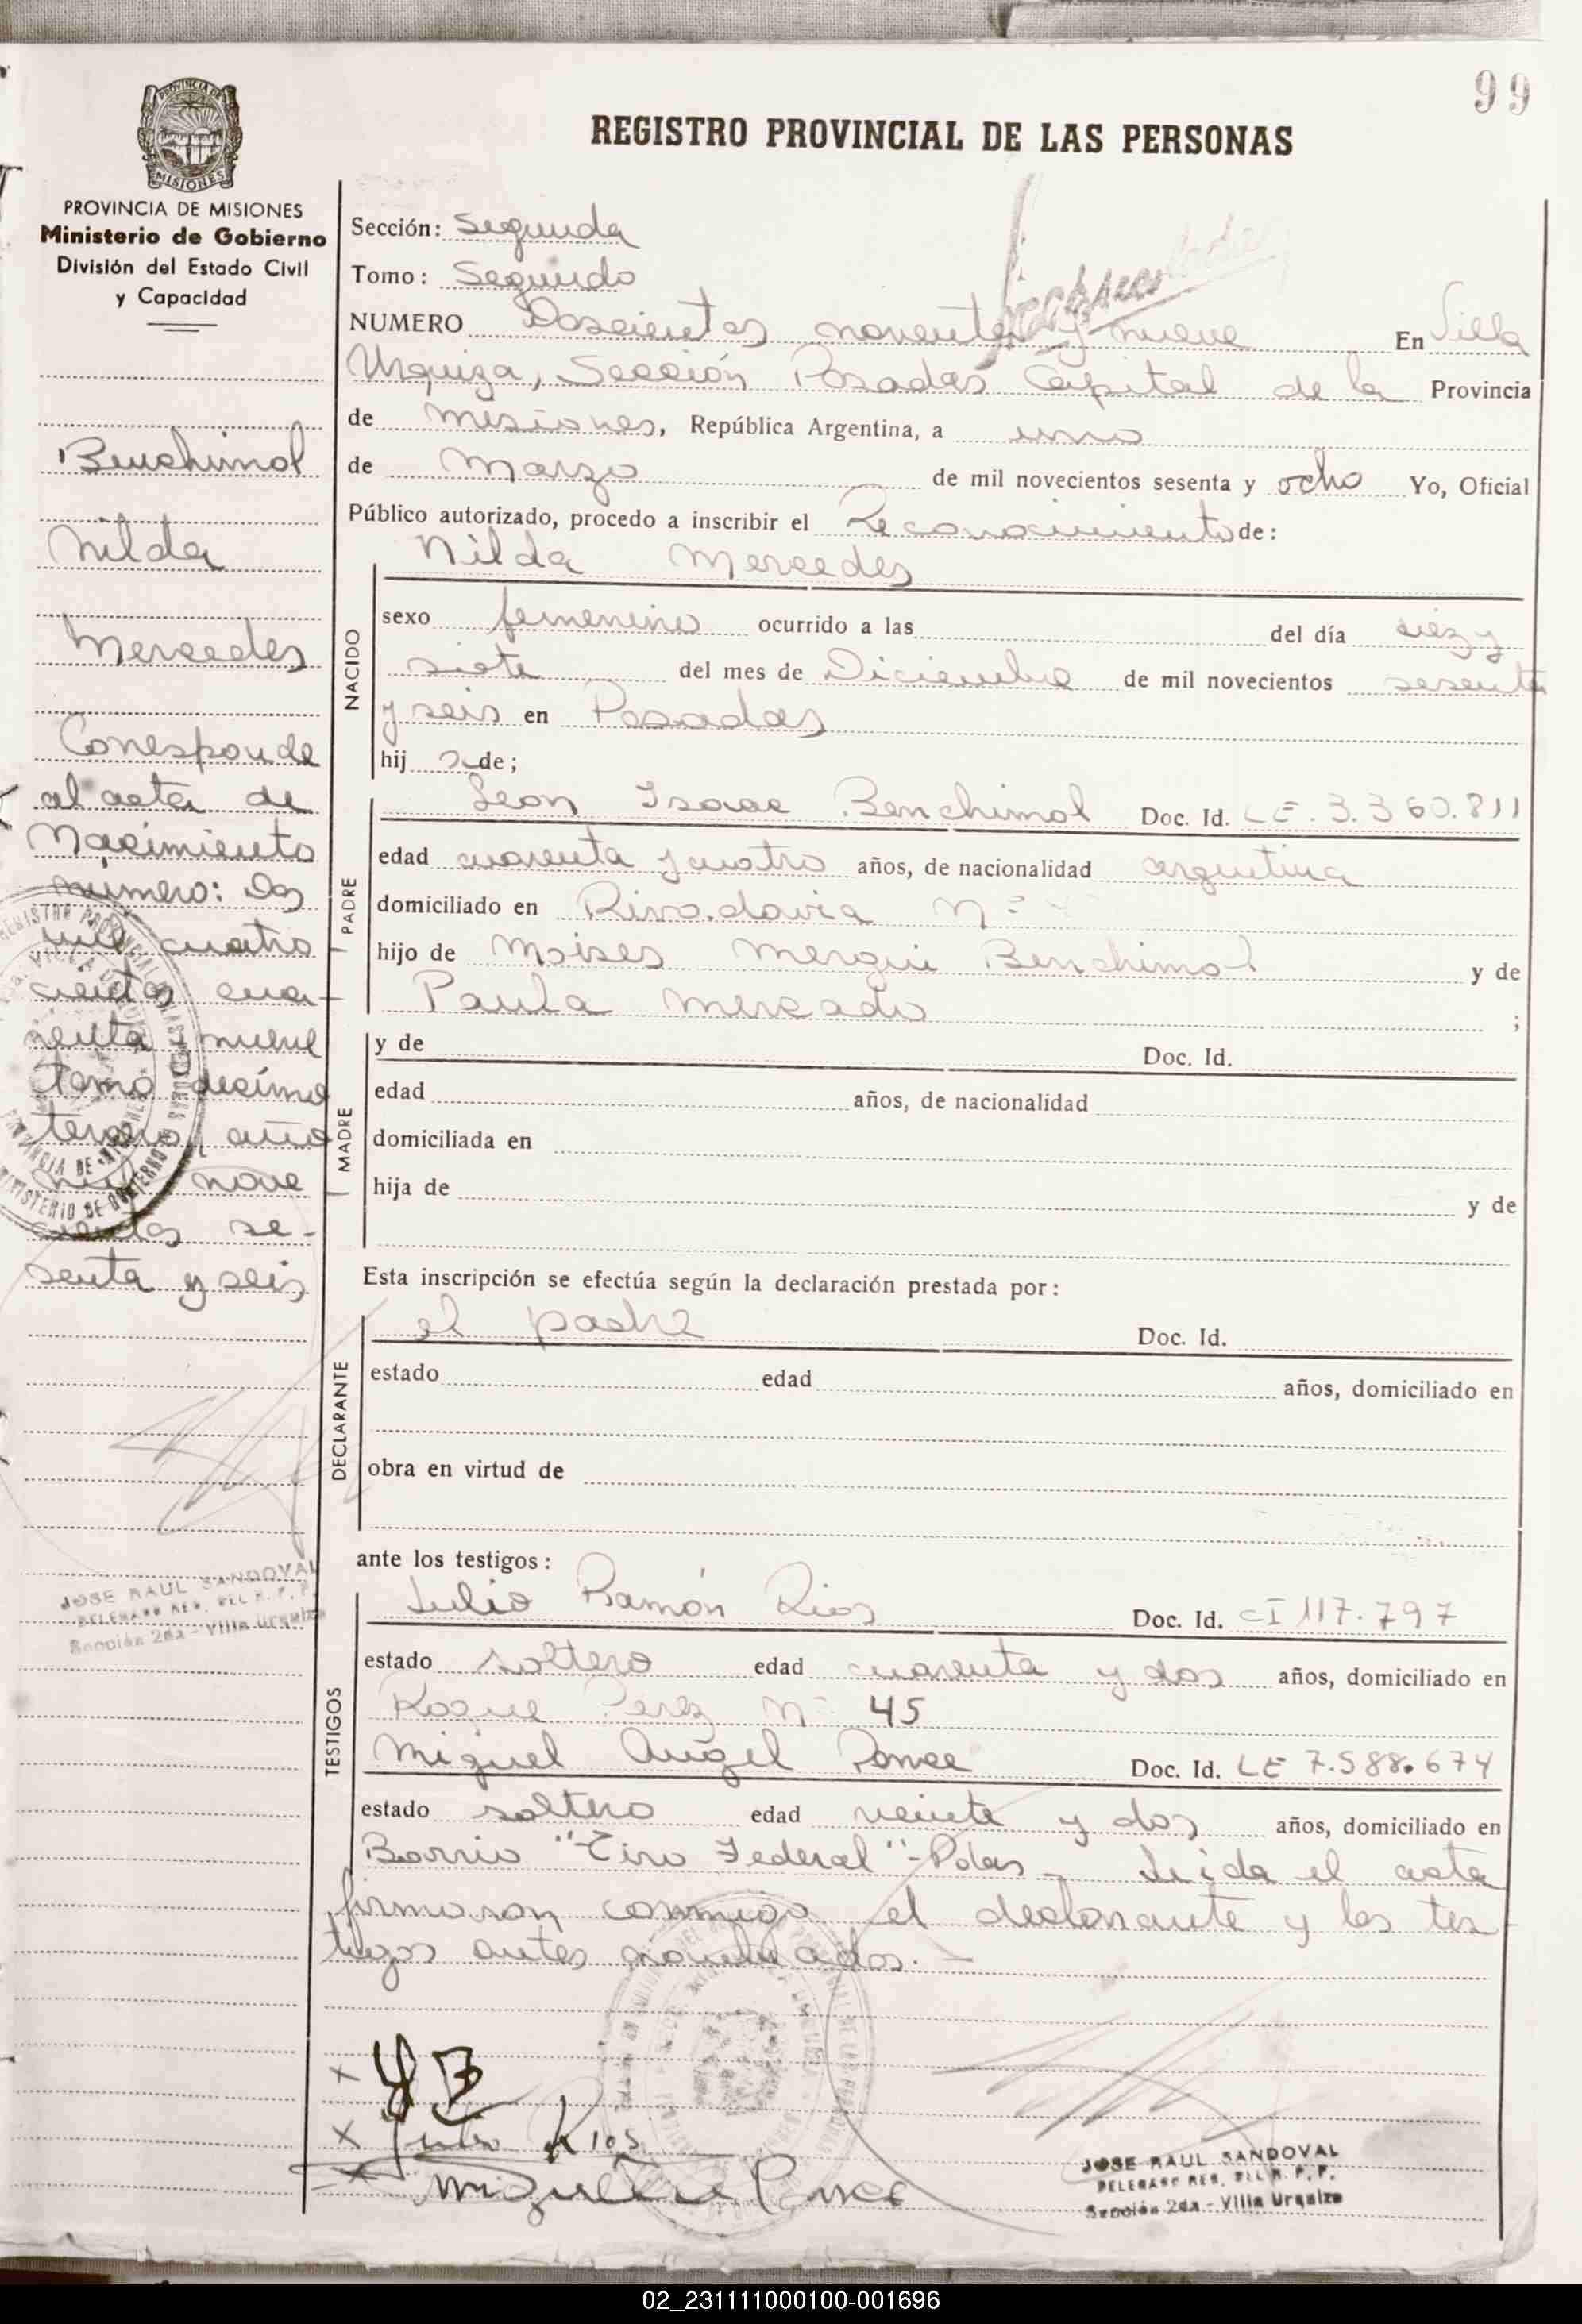 99
REGISTRO PROVINCIAL DE LAS PERSONAS
PROVINCIA DE MISIONES
Ministerio de Gobierno
División del Estado Civil
y Capacidad
Benchimol
Nilda
Mercedes
Corresponde
al acta de
Nacimiento
número: Dos
mil cuatro
cientos cua-
renta y nueve
tomo décimo
tercero, año
mil nove
cientos se-
senta y seis
JOSE RAUL SANDOVAL
Sección 2da - Villa Urquiza
Sección: Segunda
Tomo: Segundo
NUMERO Doscientos noventa y nueve En Villa
Urquiza, Sección Posadas Capital de la Provincia
de Misiones, República Argentina, a uno
de Marzo de mil novecientos sesenta y ocho Yo, Oficial
Público autorizado, procedo a inscribir el Reconocimiento de:
NACIDO
Nilda Mercedes
sexo femenino ocurrido a las del día diez y
siete del mes de Diciembre de mil novecientos sesenta
y seis en Posadas
hij a de;
PADRE
Leon Isaac Benchimol Doc. Id. LE. 3.360.811
edad cuarenta y cuatro años, de nacionalidad argentina
domiciliado en Rivadavia Nº
hijo de Moises Mergui Benchimol y de
Paula Mercado ;
MADRE
y de Doc. Id.
edad años, de nacionalidad
domiciliada en
hija de y de
Esta inscripción se efectúa según la declaración prestada por:
DECLARANTE
el padre Doc. Id.
estado edad años, domiciliado en
obra en virtud de
ante los testigos:
TESTIGOS
Julio Ramón Rios Doc. Id. CI 117.797
estado soltero edad cuarenta y dos años, domiciliado en
Roque Perez Nº 45
Miguel Angel Ponce Doc. Id. LE 7.588.674
estado soltero edad veinte y dos años, domiciliado en
Barrio "Tiro Federal"-Pdas- Leida el acta
firmaron conmigo el declarante y los tes
tigos antes nombrados.-
x
x Julio Rios
x Miguel Ponce
JOSE RAUL SANDOVAL
Sección 2da - Villa Urquiza
02_231111000100-001696